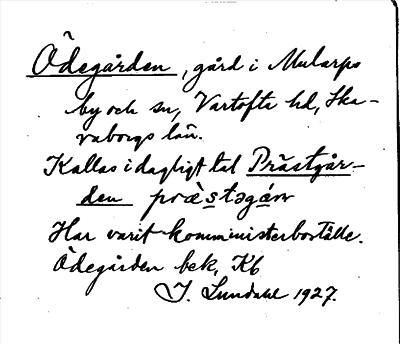 Ödegården, gård i Mularps
by och sn, Vartofta hd, Ska-
raborgs län.
Kallas i dagligt tal Prästgår-
den
Har varit komministerboställe.
Ödegården bek, Kb
J. Lundahl 1927.